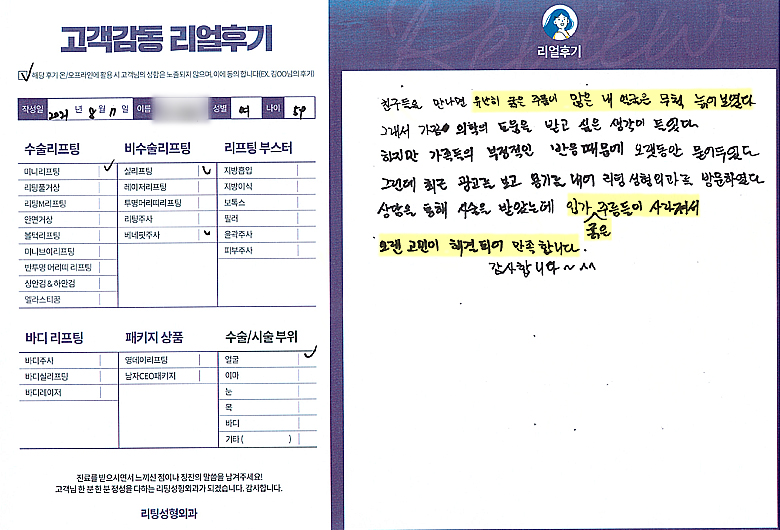 고객감동 리얼후기
해당 후기 온/오프라인에 활용 시 고객님의 성함은 노출되지 않으며, 이에 동의 합니다(EX. 김OO님의 후기)
작성일 2021 년 8 월 11 일 이름 성별 여 나이 59
수술리프팅
미니리프팅
리팅풀거상
리팅M리프팅
안면거상
볼턱리프팅
미니브이리프팅
반투명 머리띠 리프팅
상안검 & 하안검
엘라스티꿈
비수술리프팅
실리프팅
레이저리프팅
투명머리띠리프팅
리팅주사
베네핏주사
리프팅 부스터
지방흡입
지방이식
보톡스
필러
윤곽주사
피부주사
바디 리프팅
바디주사
바디실리프팅
바디레이저
패키지 상품
영데이리프팅
남자CEO패키지
수술/시술 부위
얼굴
이마
눈
목
바디
기타 ( )
진료를 받으시면서 느끼신 점이나 칭찬의 말씀을 남겨주세요!
고객님 한 분 한 분 정성을 다하는 리팅성형외과가 되겠습니다. 감사합니다.
리팅성형외과
Review
리얼후기
친구들을 만나면 유난히 굵은 주름이 많은 내 얼굴은 무척 늙어보였다
그래서 가끔 의학의 도움을 받고 싶은 생각이 들었다.
하지만 가족들의 부정적인 반응때문에 오랫동안 묻어두었다
그런데 최근 광고를 보고 용기를 내어 리팅성형외과를 방문하였다
상담을 통해 시술을 받았는데 입가 주름들이 사라져서
굵은
오랜 고민이 해결되어 만족합니다.
감사합니다~^^